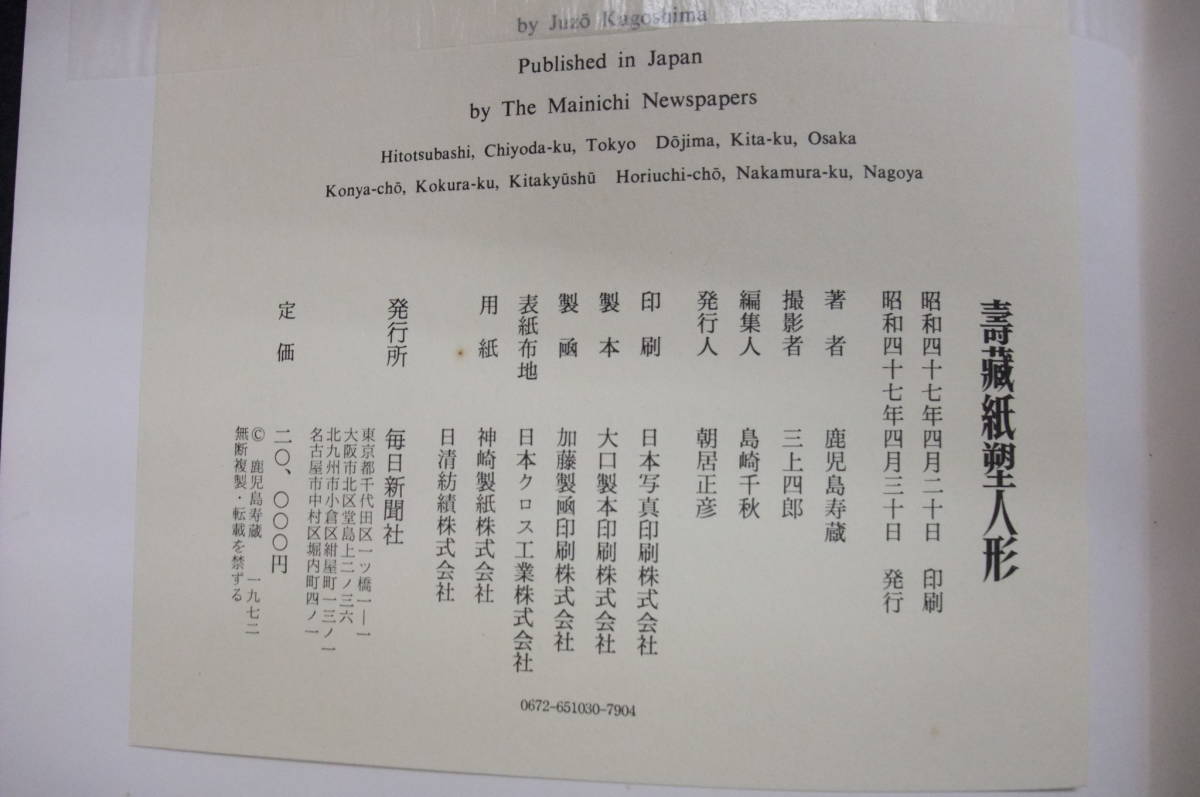 by Juzō Kagoshima
Published in Japan
by The Mainichi Newspapers
Hitotsubashi, Chiyoda-ku, Tokyo Dōjima, Kita-ku, Osaka
Konya-chō, Kokura-ku, Kitakyūshū Horiuchi-chō, Nakamura-ku, Nagoya
壽藏紙塑人形
昭和四十七年四月二十日 印刷
昭和四十七年四月三十日 発行
著者 鹿児島寿蔵
撮影者 三上四郎
編集人 島崎千秋
発行人 朝居正彦
印刷 日本写真印刷株式会社
製本 大口製本印刷株式会社
製凾 加藤製凾印刷株式会社
表紙布地 日本クロス工業株式会社
用紙 神崎製紙株式会社
日清紡績株式会社
発行所 毎日新聞社
東京都千代田区一ツ橋一―一
大阪市北区堂島上二ノ三六
北九州市小倉区紺屋町一三ノ一
名古屋市中村区堀内町四ノ一
定価 二〇、〇〇〇円
© 鹿児島寿蔵 一九七二
無断複製・転載を禁ずる
0672-651030-7904